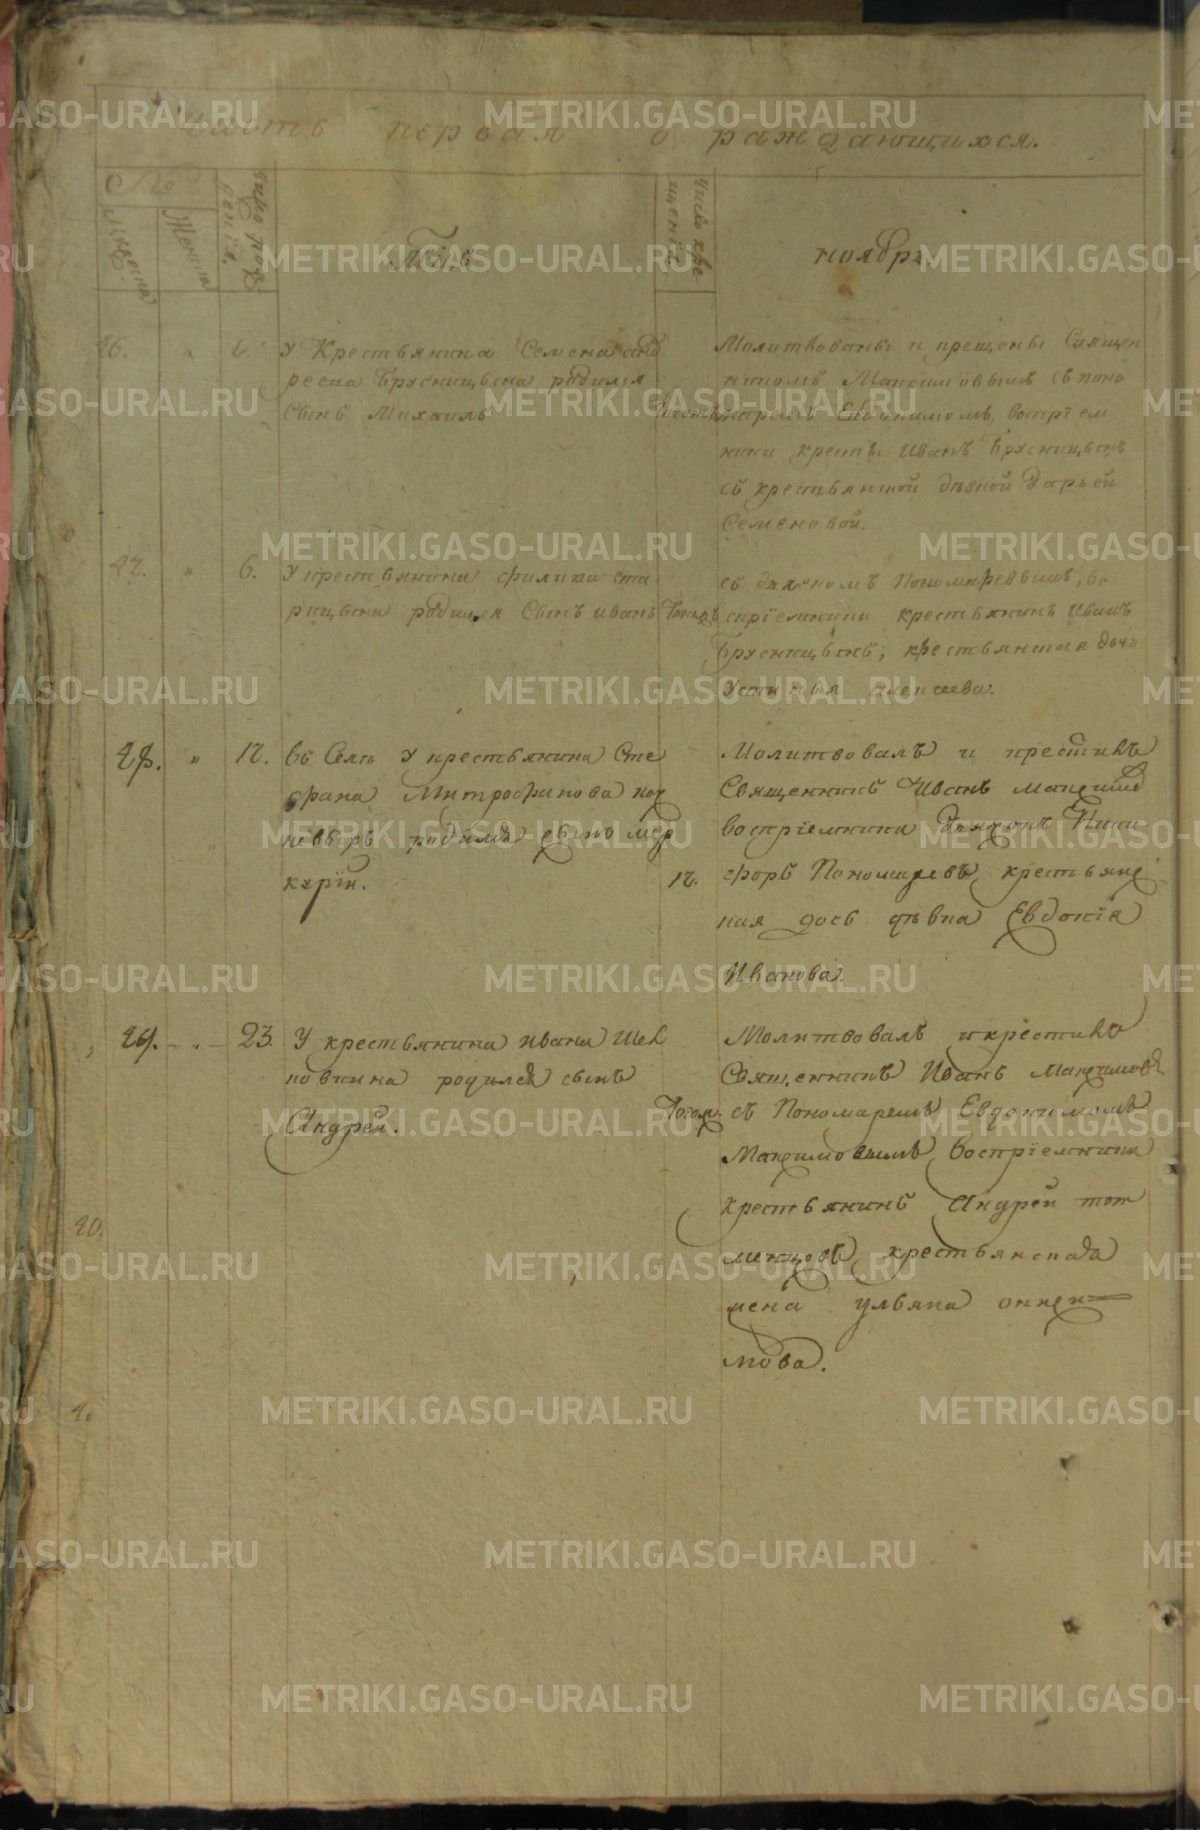 Часть первая о раждающихся.
№
Мужеска
Женска
число рож
денія.
М-цъ
число кре
щенія
ноябрь
46. " 6. У Крестьянина Семена
Брусницына родился
Сынъ Михаилъ
Молитвованы и крещены Священ
никомъ Максимовымъ съ поно
маремъ Евдокимомъ, воспріем
ники кресть. Иванъ Брусницынъ
съ крестьянской дѣвкой Дарьей
Семеновой.
47. " 6. У крестьянина филипа Ста
рицына родился Сынъ иванъ
съ дьякономъ Пономаревымъ, во
спріемники крестьянинъ Иванъ
Брусницынъ, крестьянская дочь
Устинья алексеева.
48. " 12. въ Селѣ У крестьянина Сте
фана Митрофанова
родился сынъ мер
курій.
12.
Молитвовалъ и крестилъ
Священникъ Иванъ максимо
воспріемники Дьяконъ Ники
форъ Пономаревъ, крестьянс
кая дочь дѣвка Евдокія
Иванова.
49. - " - 23. У крестьянина ивана Шел
ковкина родился сынъ
Андрей.
Тогож.
Молитвовалъ и крестилъ
Священникъ Иванъ Максимовъ
съ Пономаремъ Евдокимомъ
Максимовымъ воспріемники
крестьянинъ Андрей
крестьянская
жена ульяна
мова.
40.
METRIKI.GASO-URAL.RU